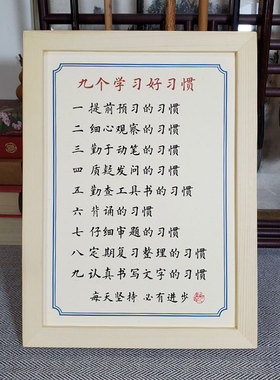 九个学习好习惯
一 提前预习的习惯
二 细心观察的习惯
三 勤于动笔的习惯
四 质疑发问的习惯
五 勤查工具书的习惯
六 背诵的习惯
七 仔细审题的习惯
八 定期复习整理的习惯
九 认真书写文字的习惯
每天坚持 必有进步